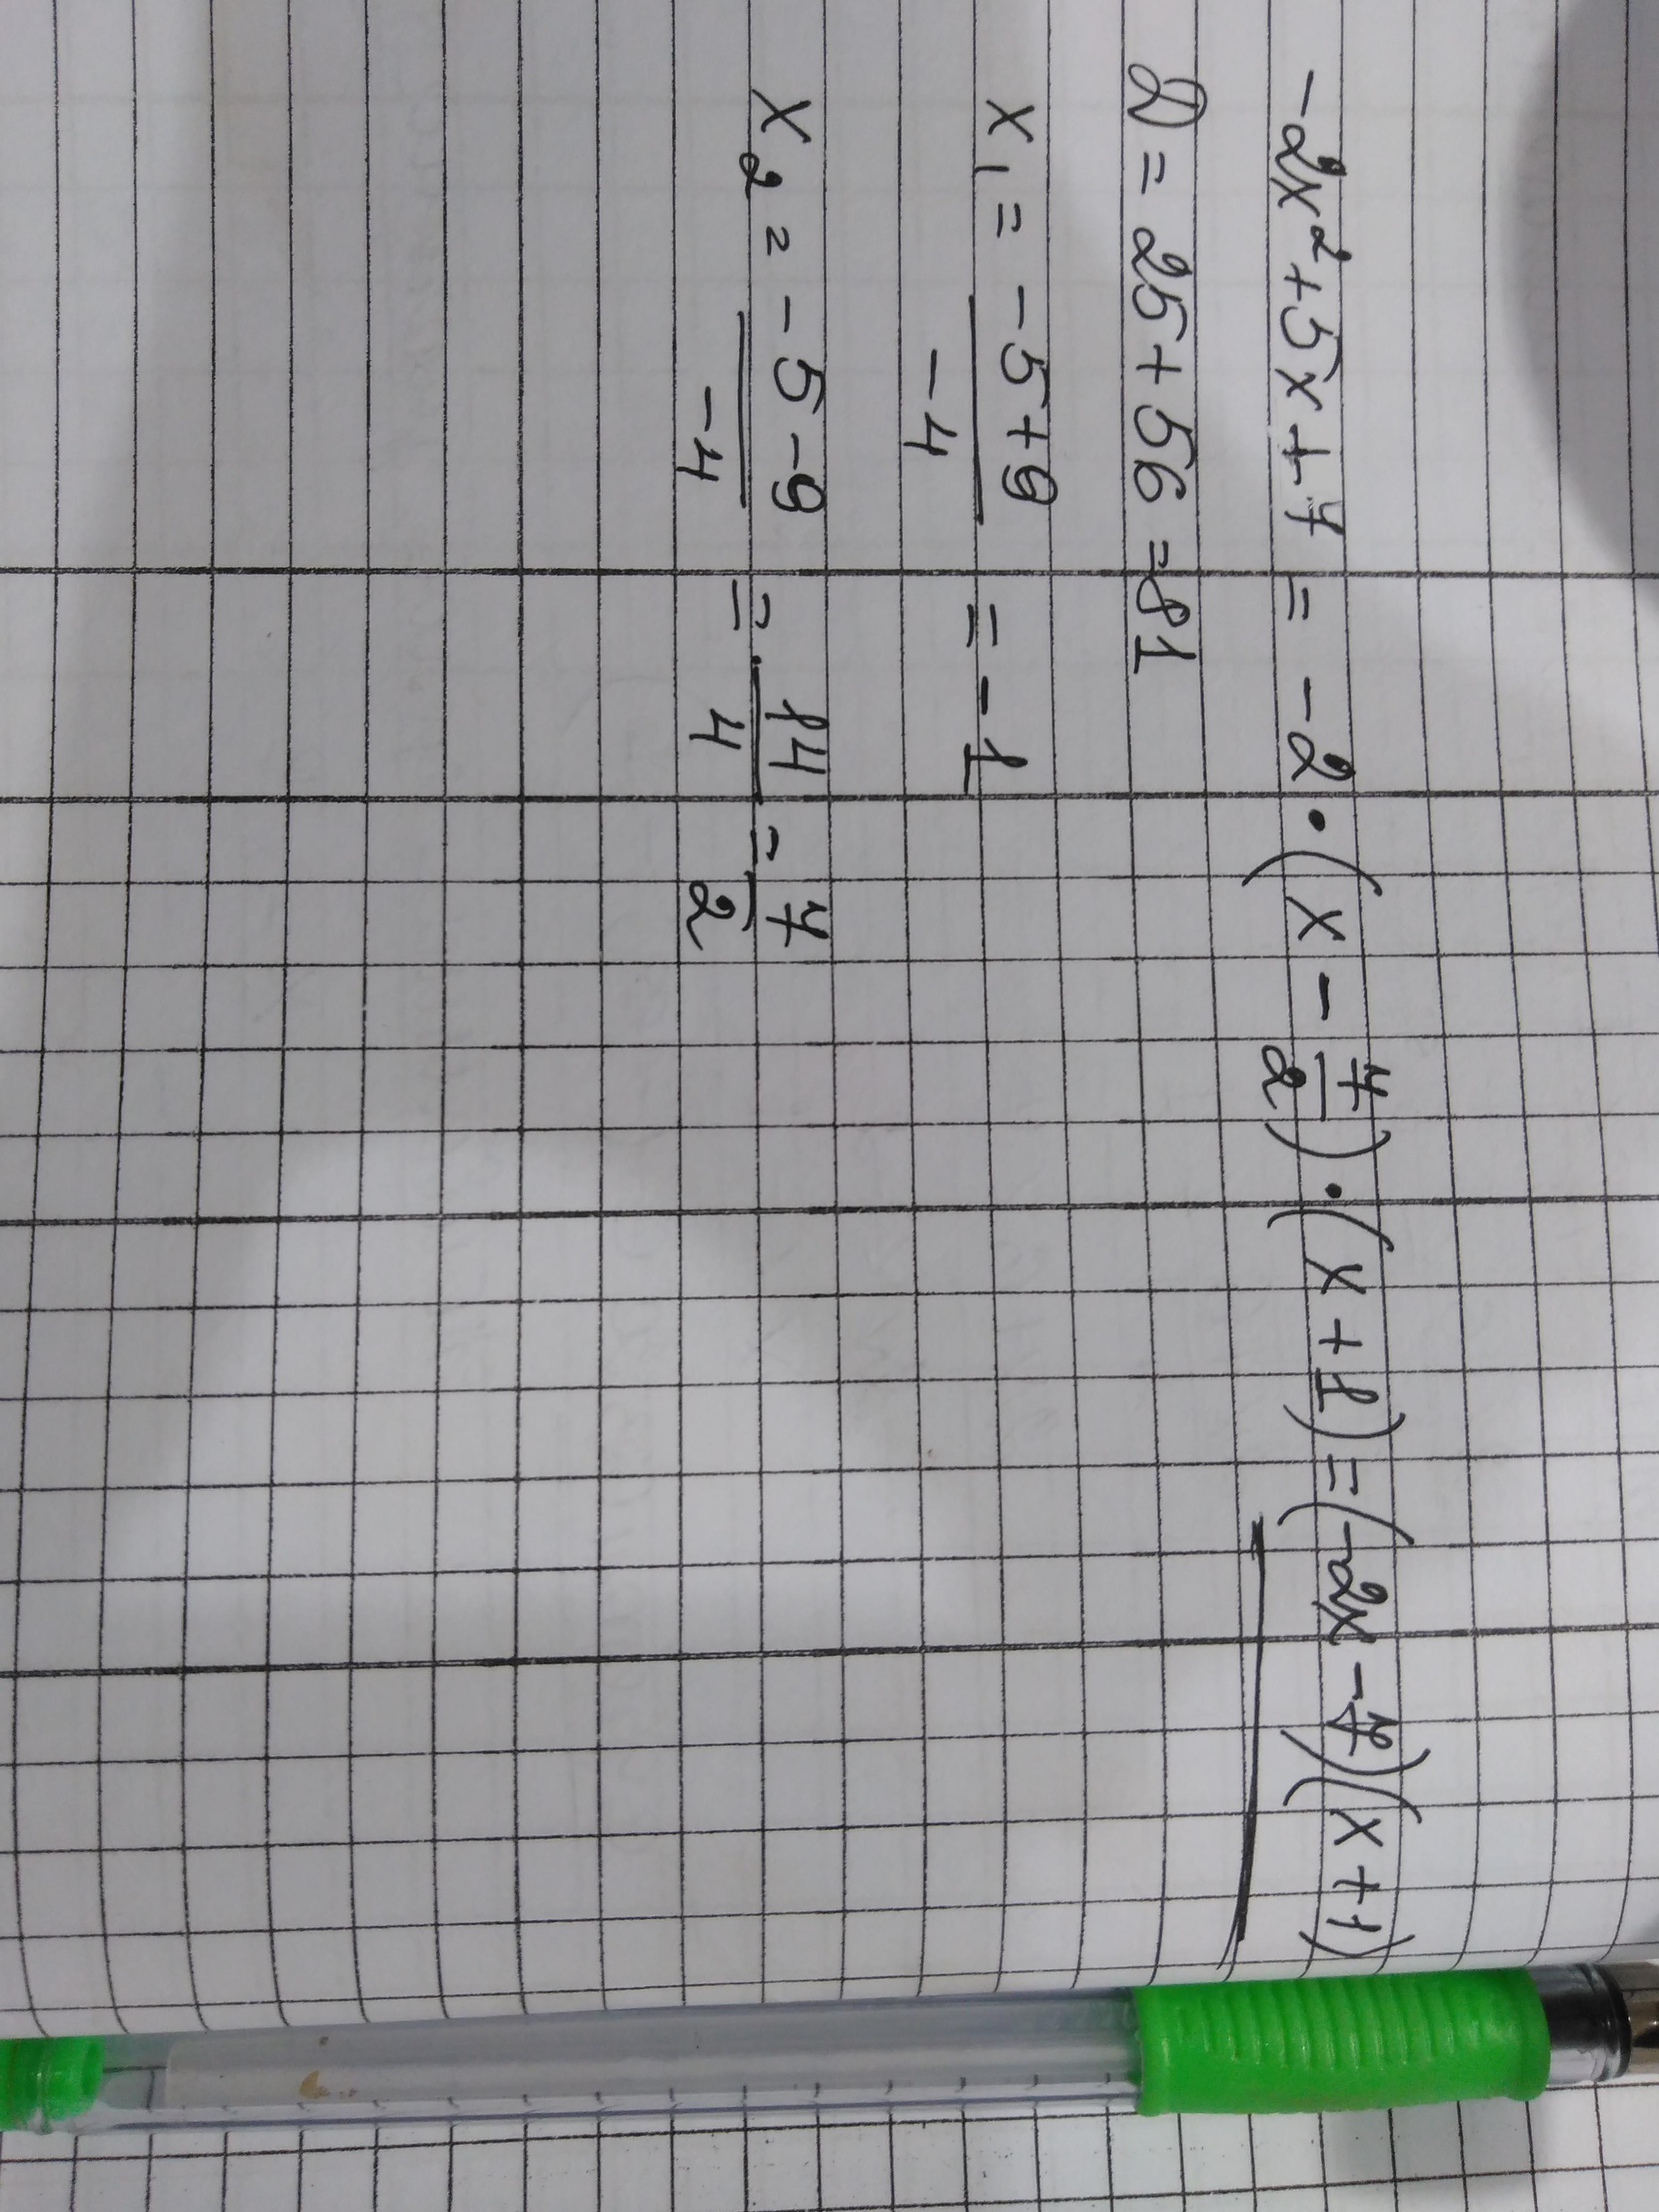 -2x²+5x+7 = -2·(x - 7/2)·(x+1)=(-2x-7)(x+1)
D = 25+56 =81
x₁ = -5+9/-4 = -1
x₂ = -5-9/-4 = 14/4 = 7/2